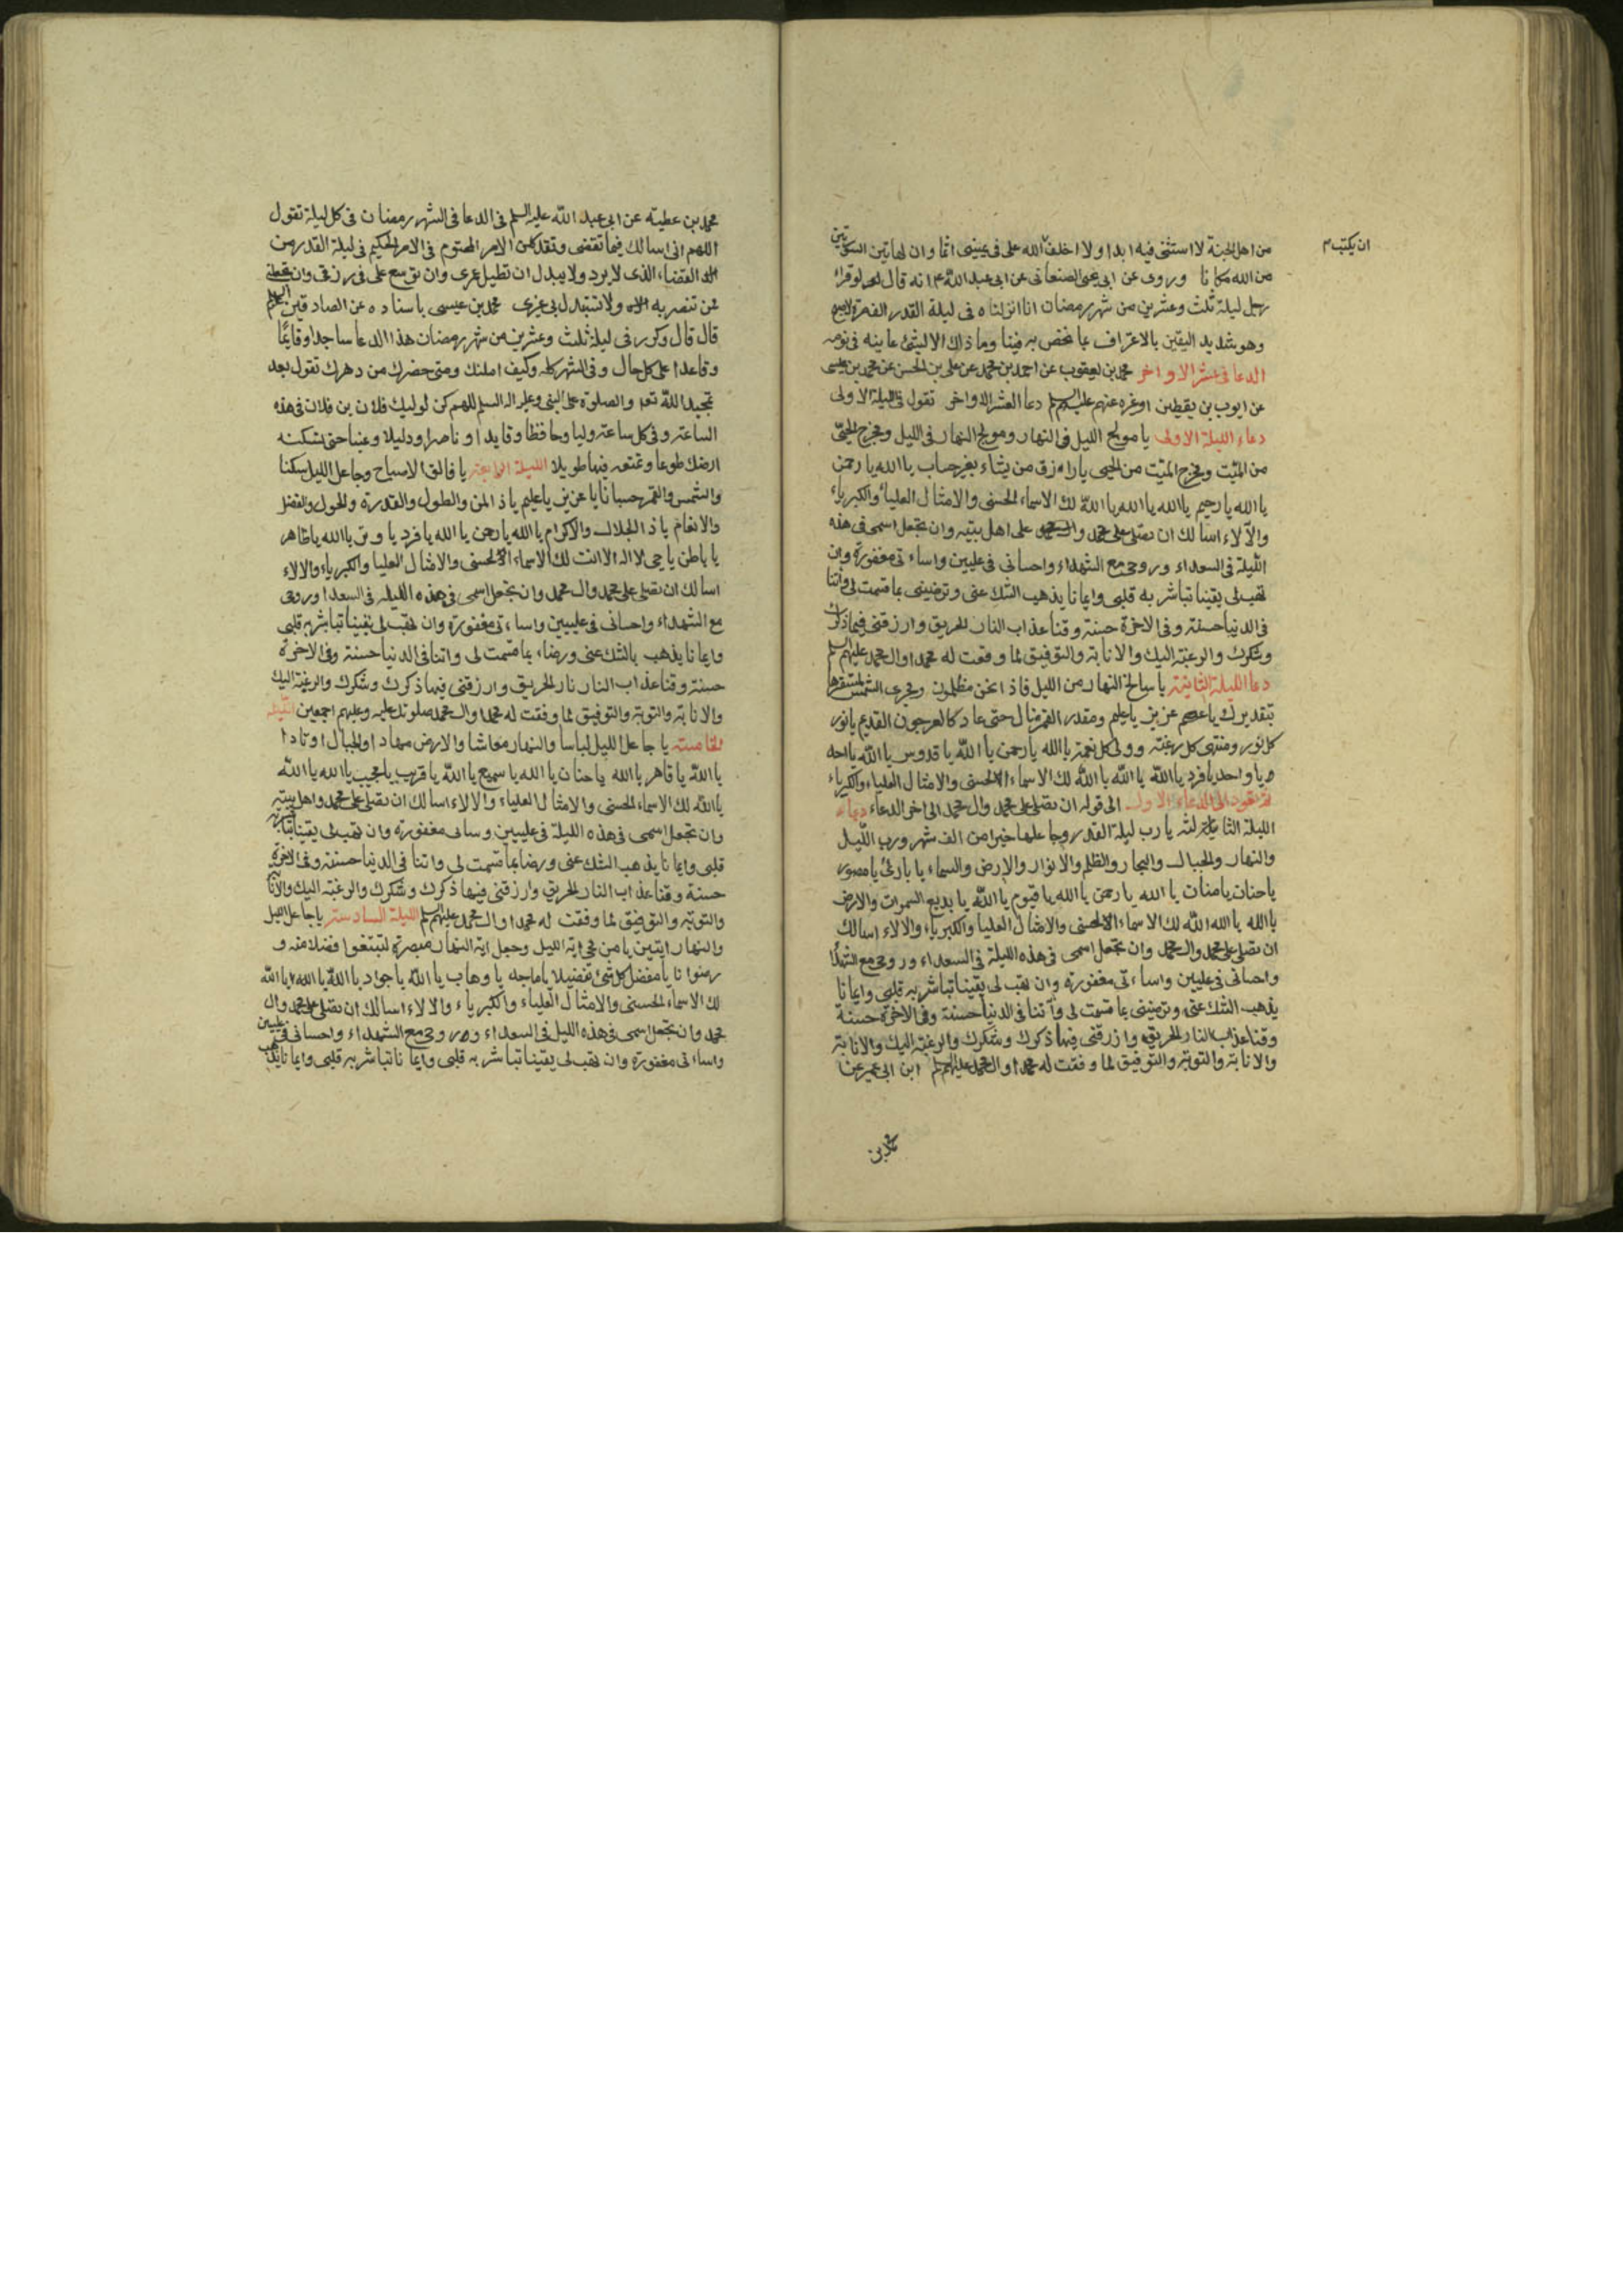 ان يكتب م
من اهل الجنة لا استثنى فيه ابدا ولا اخاف الله على فى يمينى اثما وان لهاتين السورتين
من الله مكانا وروى عن ابى يحيى الصنعانى عن ابى عبد الله ع م انه قال لو قرا
رجل ليلة ثلث وعشرين من شهر رمضان انا انزلناه فى ليلة القدر الف مرة لاصبح
وهو شديد اليقين بالاعتراف بما نخص به فينا وما ذلك الا لشئ عاينه فى نومه
الدعا فى عشر الاواخر محمد بن يعقوب عن احمد بن محمد عن على بن الحسن عن محمد بن عيسى
عن ايوب بن يقطين اوغره عنهم عليهم دعا العشر الاواخر تقول فى الليلة الاولى
دعاء الليلة الاولى يا مولج الليل فى النهار ومولج النهار فى الليل ومخرج الحىّ
من الميّت ومخرج الميّت من الحيى يا رازق من يشاء بغير حساب يا الله يا رحمن
يا الله يا رحيم يا الله يا الله يا الله لك الاسماء الحسنى والامثال العلياء والكبرياء
والآلاء اسالك ان تصلى على محمد وال محمد على اهل بيته وان تجعل اسمى فى هذه
الليلة فى السعداء وروحى مع الشهداء واحسانى فى عليين واساءتى مغفورة وان
تهب لى يقينا تباشر به قلبى وايمانا يذهب الشك عنى وترضينى بما قسمت لى واتنا
فى الدنيا حسنة وفى الاخرة حسنة وقنا عذاب النار الحريق وارزقنى فيها ذكرك
وشكرك والرغبة اليك والانابة والتوفيق لما وفقت له محمدا وال محمد عليهم
دعا الليلة الثانية يا سالخ النهار من الليل فاذا نحن مظلمون ومجرى الشمس لمستقرها
بتقديرك يا عزيز يا عليم ومقدر القمر منازل حتى عاد كالعرجون القديم يا نور
كل نور ومنتهى كل رغبة وولى كل نعمة يا الله يا رحمن يا الله يا قدوس يا الله يا احد
يا واحد يا فرد يا الله يا الله يا الله لك الاسماء الحسنى والامثال العلياء والكبرياء
ثم تعود الى الدعاء الاول الى قوله ان تصلى على محمد وال محمد الى اخر الدعاء دعاء
الليلة الثالثة يا رب ليلة القدر وجاعلها خيرا من الف شهر ورب الليل
والنهار والجبال والبحار والظلم والانوار والارض والسماء يا بارئ يا مصور
يا حنان يا منان يا الله يا رحمن يا الله يا قيوم يا الله يا بديع السموات والارض
يا الله يا الله الله لك الاسماء الحسنى والامثال العليا والكبرياء والالاء اسالك
ان تصلى على محمد وال محمد وان تجعل اسمى فى هذه الليلة فى السعداء وروحى مع الشهدا
واحسانى فى عليين واساءتى مغفورة وان تهب لى يقينا تباشر به قلبى وايمانا
يذهب الشك عنى وترضينى بما قسمت لى وآتنا فى الدنيا حسنة وفى الاخرة حسنة
وقنا عذاب النار الحريق وارزقنى فيها ذكرك وشكرك والرغبة اليك والانابة
والانابة والتوبة والتوفيق لما وفقت له محمدا وال محمد عليهم ابن ابى عمير عن
محمد بن
محمد بن عطيه عن ابى عبد الله عليه السلم فى الدعا فى الشهر رمضان فى كل ليلة تقول
اللهم انى اسالك فيما تقضى وتقدر من الامر المحتوم فى الامر الحكيم فى ليلة القدر من
القضاء الذى لا يرد ولا يبدل ان تطيل عمرى وان توسع على فى رزقى وان تجعلنى
ممن تنصر به ولا تستبدل بى غيرى محمد بن عيسى باسناده عن الصادقين
قال قال وكرر فى ليلة ثلث وعشرين من شهر رمضان هذا الدعا ساجدا وقايمًا
وقاعدا على كل حال وفى الشهر كله وكيف امكنك ومتى حضرك من دهرك تقول بعد
تمجيد الله تعا والصلوة على النبى وعليه اله السلم اللهم كن لوليك فلان بن فلان فى هذه
الساعة وفى كل ساعة وليا وحافظا وقايدا وناصرا ودليلا وعينا حتى تسكنه
ارضك طوعا وتمتعه فيها طويلا الليلة الرابعة يا فالق الاصباح وجاعل الليل سكنا
والشمس والقمر حسبانا يا عزيز يا عليم يا ذا المن والطول والقدرة والحول والفضل
والانعام يا ذا الجلال والاكرام يا الله يا رحمن يا الله يا فرد يا وتر يا الله يا ظاهر
يا باطن يا حى لا اله الا انت لك الاسماء الحسنى والامثال العليا والكبرياء والالاء
اسالك ان تصلى على محمد وال محمد وان تجعل اسمى فى هذه الليله فى السعدا وروحى
مع الشهداء واحسانى فى عليين واساءتى مغفورة وان تهب لى يقينا تباشر به قلبى
وايمانا يذهب بالشك عنى ورضاء بما قسمت لى واتنا فى الدنيا حسنة وفى الاخرة
حسنة وقنا عذاب النار نار الحريق وارزقنى فيها ذكرك وشكرك والرغبة اليك
والانابة والتوبة والتوفيق لما وفقت له محمدا وال محمد صلوتك عليه وعليهم اجمعين الليلة
الخامسة يا جاعل الليل لباسا والنهار معاشا والارض مهادا والجبال اوتادا
يا الله يا قاهر يا الله يا حنان يا الله يا سميع يا الله يا قريب يا مجيب يا الله يا الله
يا الله لك الاسماء الحسنى والامثال العلياء والالاء اسالك ان تصلى على محمد واهل بيته
وان تجعل اسمى فى هذه الليلة فى عليين وساتى مغفورة وان تهب لى يقينا تباشر به
قلبى وايمانا يذهب الشك عنى ورضا بما قسمت لى واتنا فى الدنيا حسنة وفى الاخرة
حسنة وقنا عذاب النار الحريق وارزقنى فيها ذكرك وشكرك والرغبة اليك والانابة
والتوبة والتوفيق لما وفقت له محمدا وال محمد عليهم الليلة السادسة يا جاعل الليل
والنهار ايتين يا من محى اية الليل وجعل اية النهار مبصرة لتبتغوا فضلا منه و
رضوانا يا مفضل كل شئ تفضيلا يا ماجد يا وهاب يا الله يا جواد يا الله يا الله يا الله
لك الاسماء الحسنى والامثال العلياء والكبرياء والالاء اسالك ان تصلى على محمد وال
محمد وان تجعل اسمى فى هذه الليل فى السعداء وروحى مع الشهداء واحسانى فى عليين
واساءتى مغفورة وان تهب لى يقينا تباشر به قلبى وايمانا تباشر به قلبى وايمانا يذهب